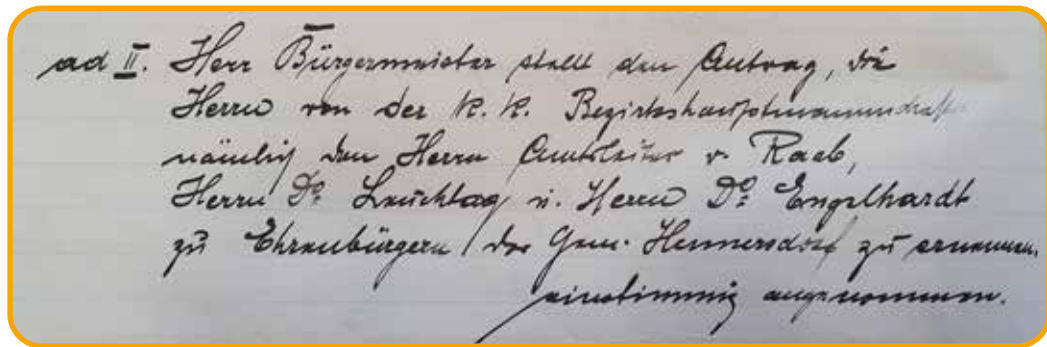 ad II. Herr Bürgermeister stellt den Antrag, die
Herrn von der k. k. Bezirkshauptmannschaft
nämlich den Herrn Amtsleiter v. Raab,
Herrn Dr. Leuchtag u. Herrn Dr. Engelhardt
zu Ehrenbürgern der Gem. Hennersdorf zu ernennen.
einstimmig angenommen.